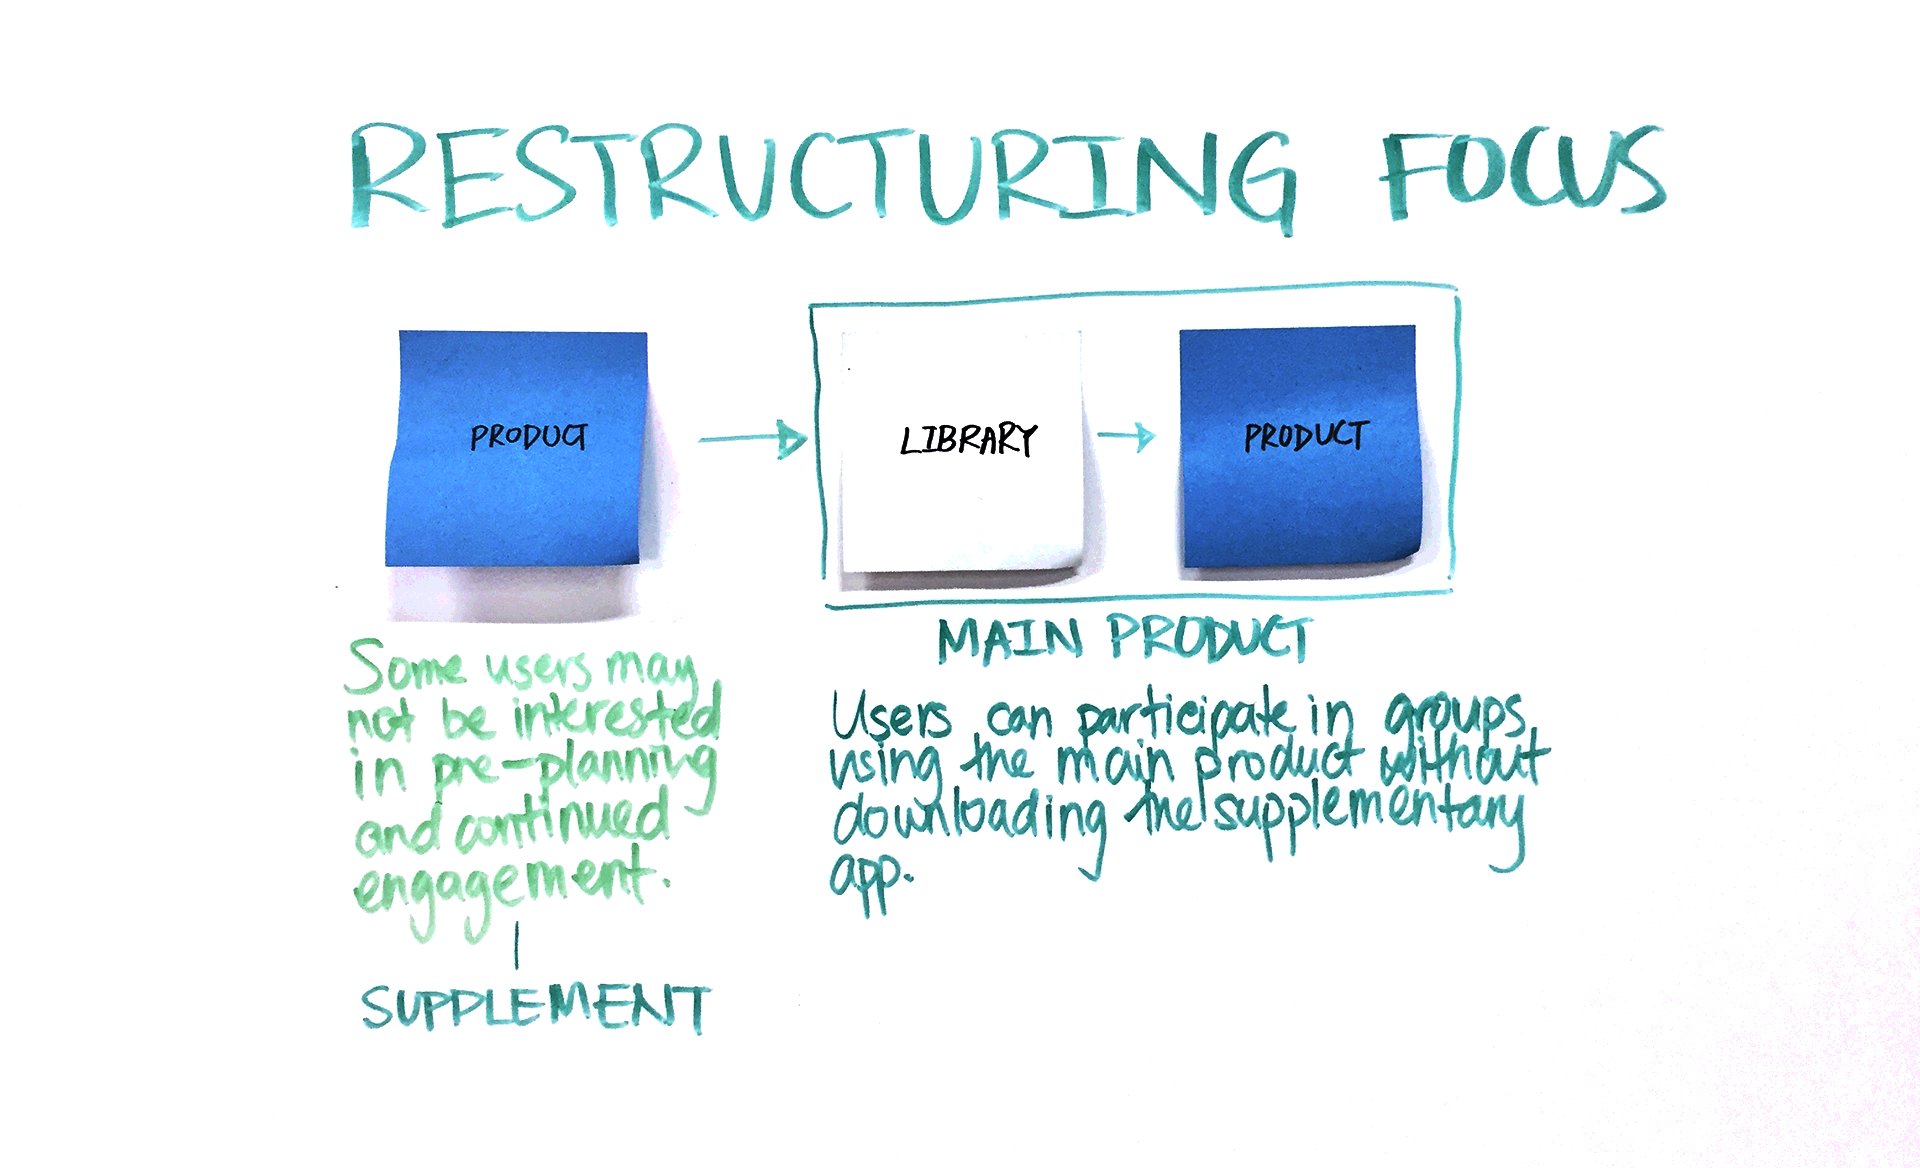 RESTRUCTURING FOCUS
PRODUCT
LIBRARY
PRODUCT
MAIN PRODUCT
Some users may
not be interested
in pre-planning
and continued
engagement.
SUPPLEMENT
Users can participate in groups
using the main product without
downloading the supplementary
app.